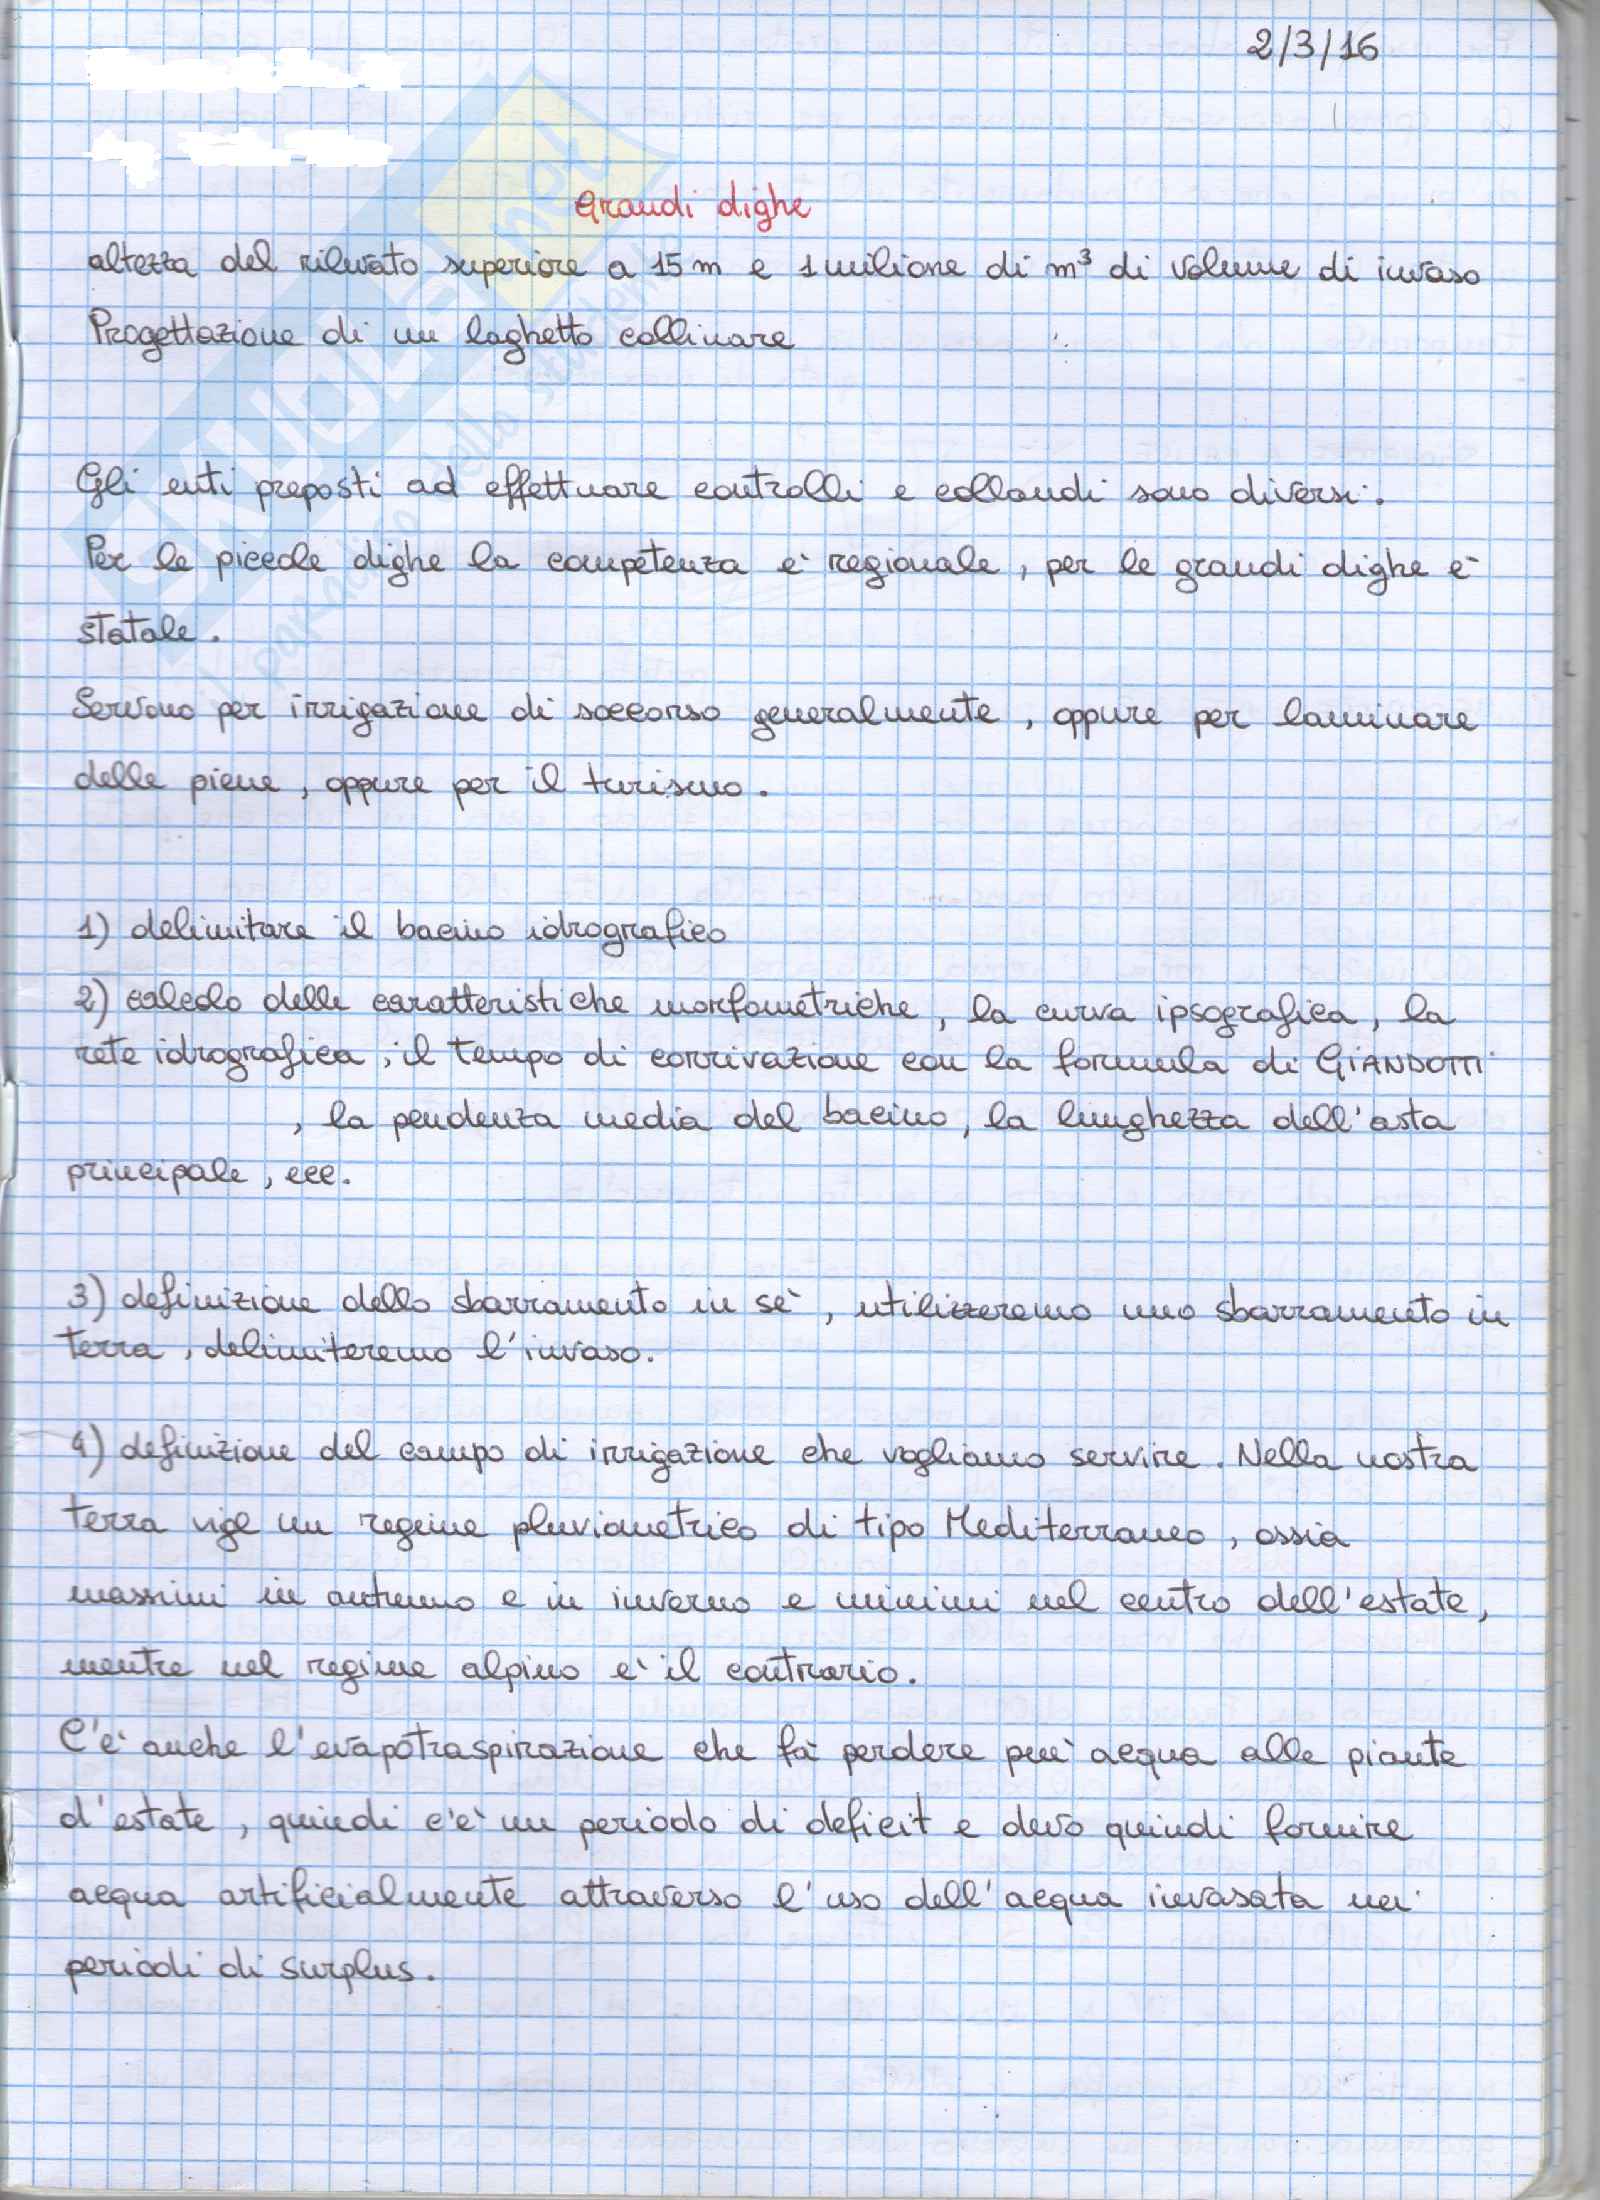 2/3/16
Grandi dighe
altezza del rilevato superiore a 15 m e 1 milione di m³ di volume di invaso
Progettazione di un laghetto collinare
Gli enti preposti ad effettuare controlli e collaudi sono diversi.
Per le piccole dighe la competenza è regionale, per le grandi dighe è
statale.
Servono per irrigazione di soccorso generalmente, oppure per laminare
delle piene, oppure per il turismo.
1) delimitare il bacino idrografico
2) calcolo delle caratteristiche morfometriche, la curva ipsografica, la
rete idrografica, il tempo di corrivazione con la formula di GIANDOTTI
, la pendenza media del bacino, la lunghezza dell'asta
principale, ecc.
3) definizione dello sbarramento in sè, utilizzeremo uno sbarramento in
terra, delimiteremo l'invaso.
4) definizione del campo di irrigazione che vogliamo servire. Nella nostra
terra vige un regime pluviometrico di tipo Mediterraneo, ossia
massimi in autunno e in inverno e minimi nel centro dell'estate,
mentre nel regime alpino è il contrario.
C'è anche l'evapotraspirazione che fà perdere più acqua alle piante
d'estate, quindi c'è un periodo di deficit e devo quindi fornire
acqua artificialmente attraverso l'uso dell'acqua invasata nei
periodi di surplus.
SKUOLA.net
il paradiso dello studente